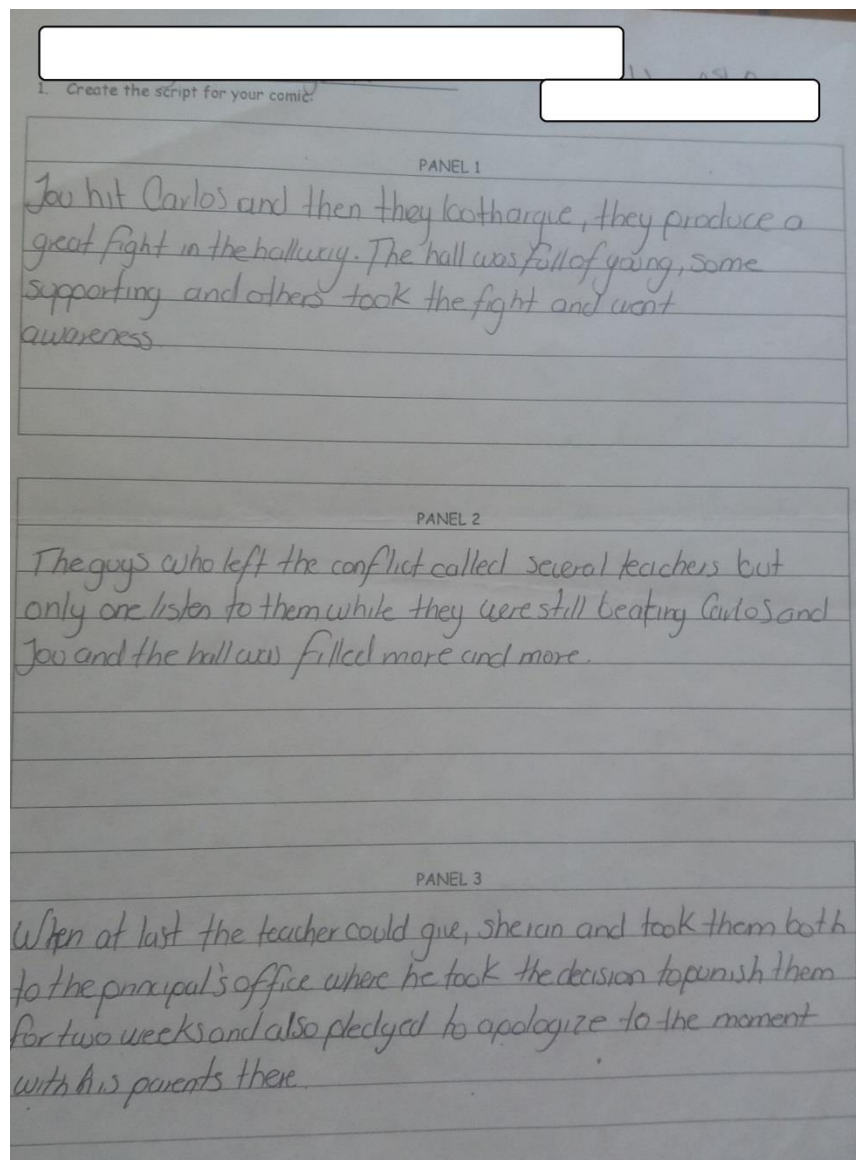 1. Create the script for your comic:
PANEL 1
Jou hit Carlos and then they both argue, they produce a
great fight in the hallway. The hall was full of young, some
supporting and others took the fight and went
awareness
PANEL 2
The guys who left the conflict called several teachers but
only one listen to them while they were still beating Carlos and
Jou and the hall was filled more and more.
PANEL 3
When at last the teacher could give, she ran and took them both
to the principal's office where he took the decision to punish them
for two weeks and also pledged to apologize to the moment
with his parents there.